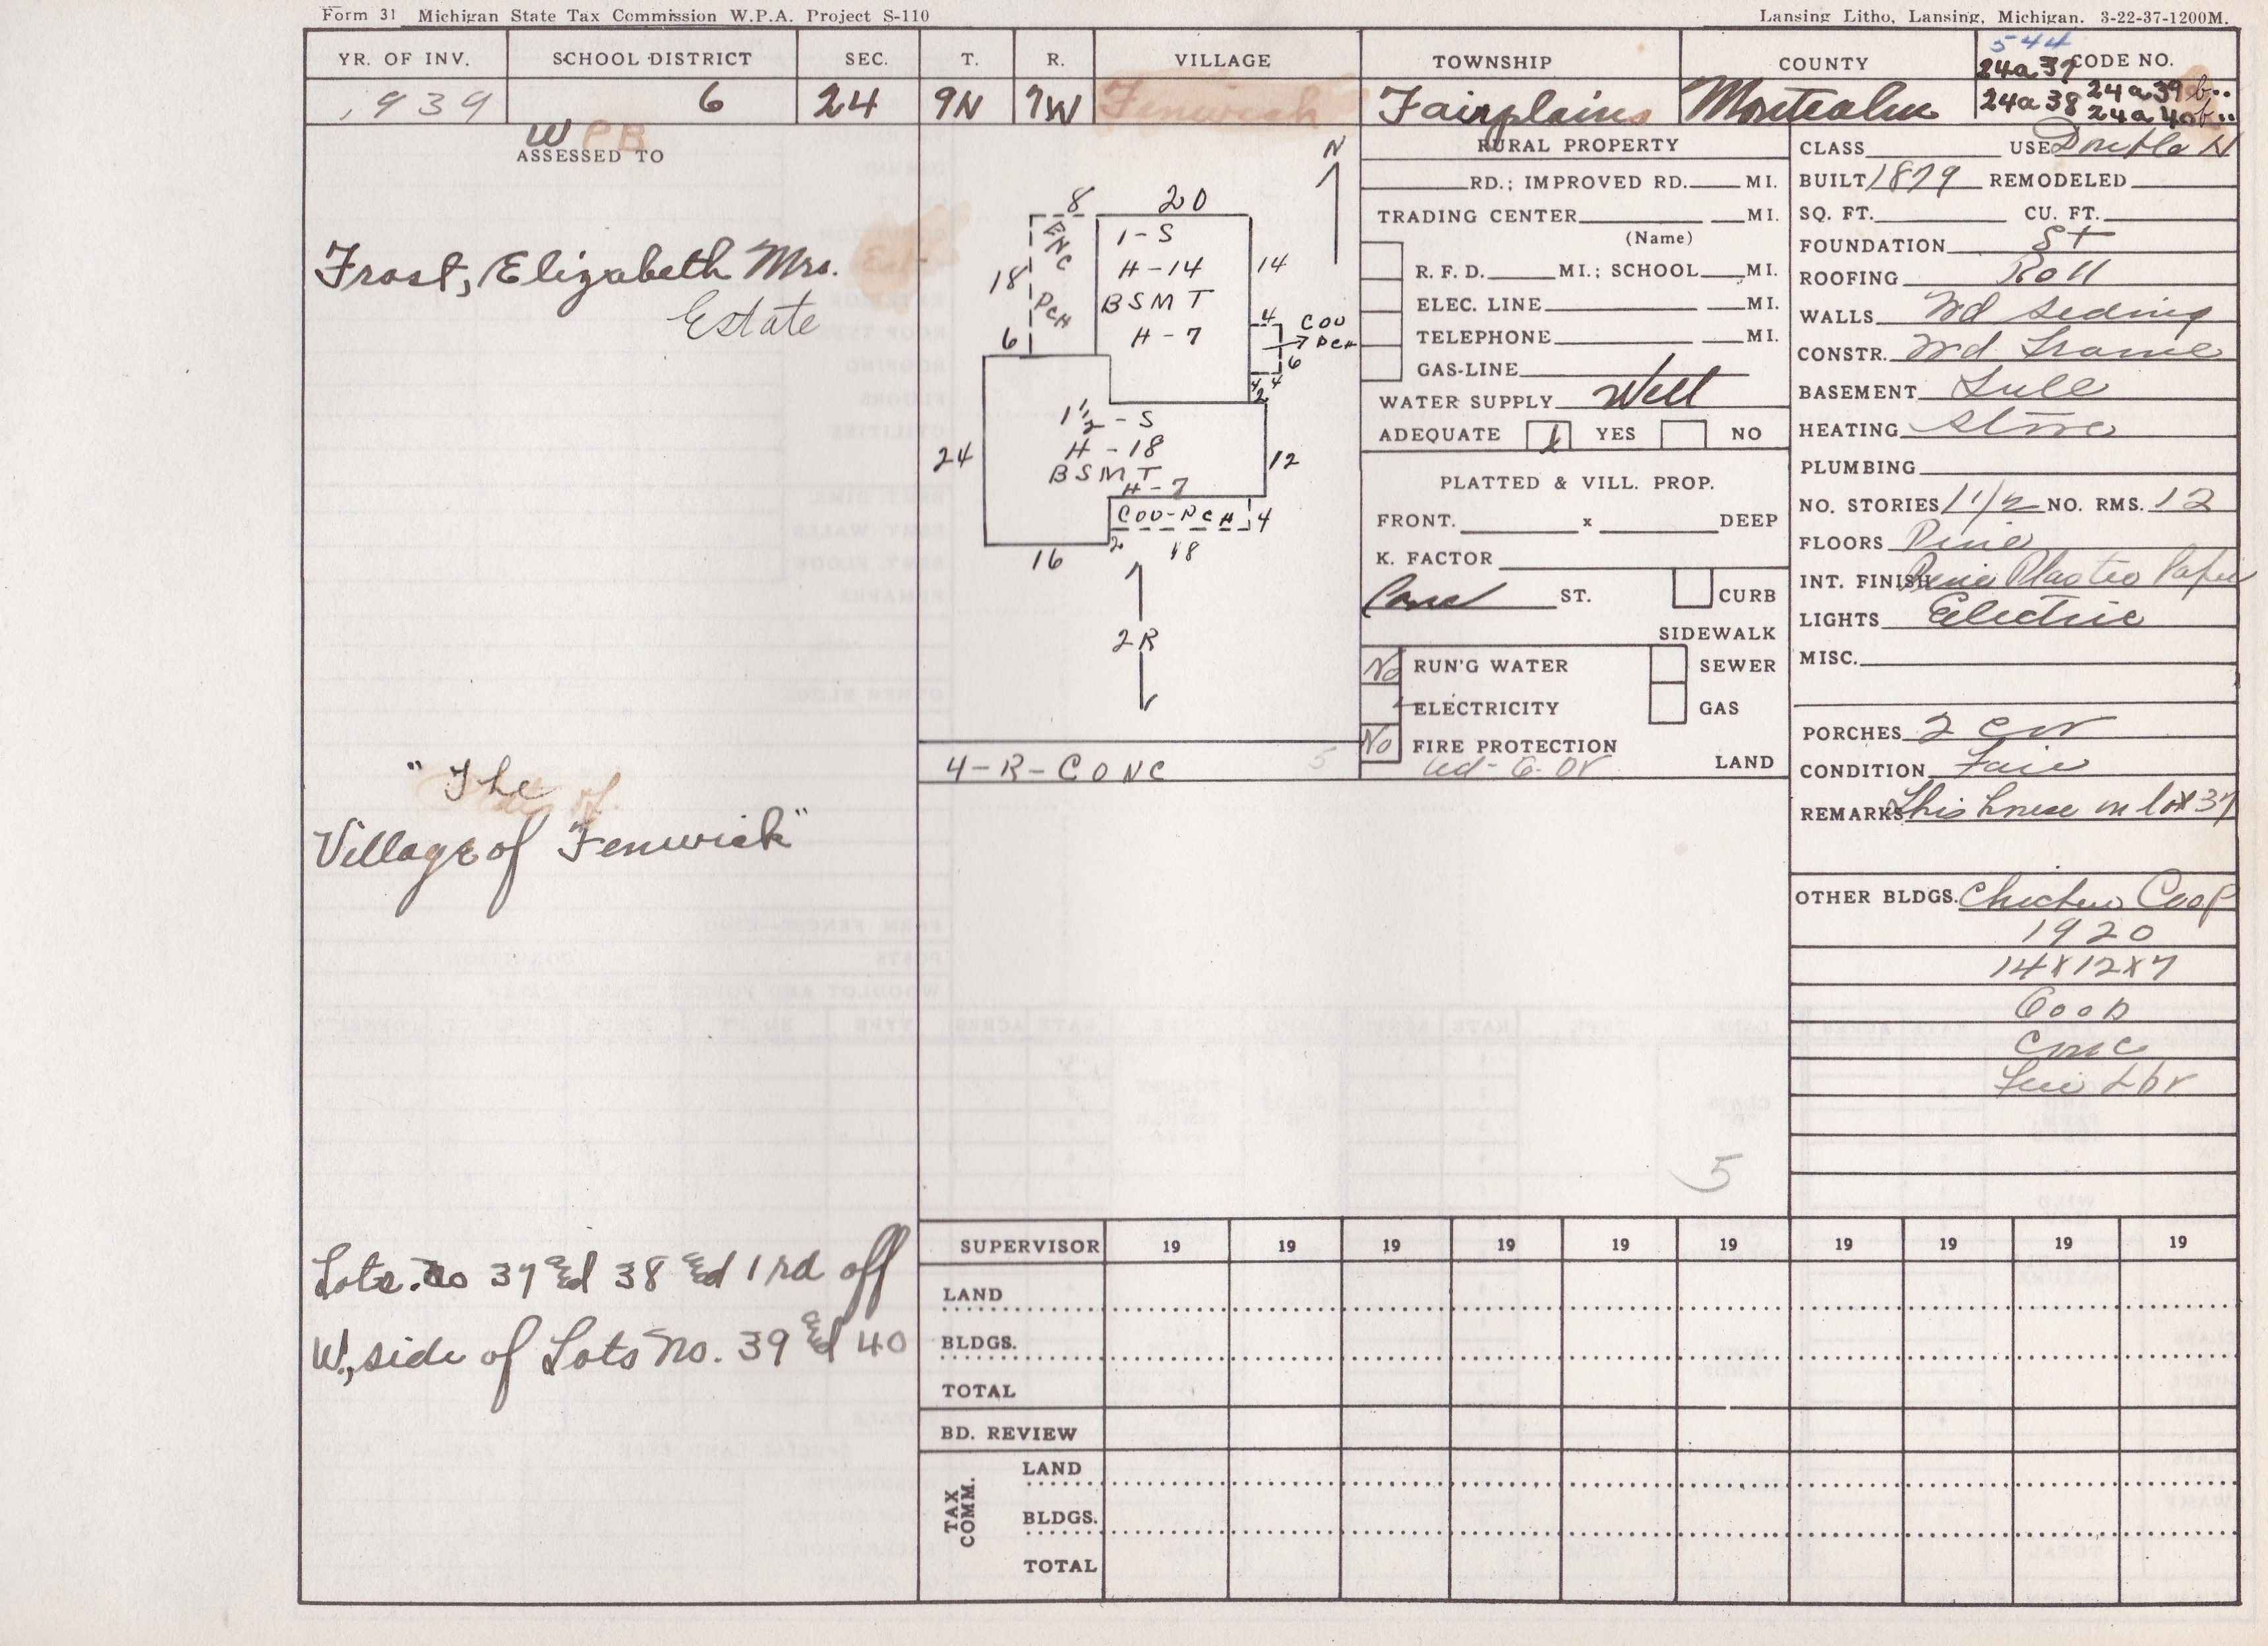 Form 31 Michigan State Tax Commission W.P.A. Project S-110
Lansing Litho, Lansing, Michigan. 3-22-37-1200M.
YR. OF INV. SCHOOL DISTRICT SEC. T. R. VILLAGE TOWNSHIP COUNTY CODE NO.
544
24a37
1939 6 24 9N 7W Fenwick Fairplains Montcalm 24a38 24a39b
24a40b
W PB
ASSESSED TO
Frost, Elizabeth Mrs.
Estate
"The
Village of Fenwick"
Lots. No 37 &d 38 &d 1 rd off
W, side of Lots No. 39 &d 40
N
8 20
ENC PCH
18
6
1-S
H-14
BSMT
H-7
14
4
COV PCH
6
4 4
2
1 1/2 - S
H - 18
BSMT
H-7
24
12
COV-PCH 4
2
16 18
2R
4-R-CONC 5
RURAL PROPERTY
RD.; IMPROVED RD. MI.
TRADING CENTER MI.
(Name)
R. F. D. MI.; SCHOOL MI.
ELEC. LINE MI.
TELEPHONE MI.
GAS-LINE
WATER SUPPLY Well
ADEQUATE X YES NO
PLATTED & VILL. PROP.
FRONT. x DEEP
K. FACTOR
Conc ST. CURB
SIDEWALK
No RUN'G WATER SEWER
ELECTRICITY GAS
No FIRE PROTECTION
LAND
CLASS USE Double H
BUILT 1879 REMODELED
SQ. FT. CU. FT.
FOUNDATION St
ROOFING Roll
WALLS Wd Siding
CONSTR. Wd Frame
BASEMENT Full
HEATING Stove
PLUMBING
NO. STORIES 1 1/2 NO. RMS. 12
FLOORS Pine
INT. FINISH Pine Plaster Paper
LIGHTS Electric
MISC.
PORCHES 2 cov
CONDITION Fair
REMARKS This house on lot 37
OTHER BLDGS. Chicken Coop
1920
14x12x7
Good
Conc
Lbr
5
SUPERVISOR 19 19 19 19 19 19 19 19 19 19
LAND
BLDGS.
TOTAL
BD. REVIEW
TAX COMM.
LAND
BLDGS.
TOTAL